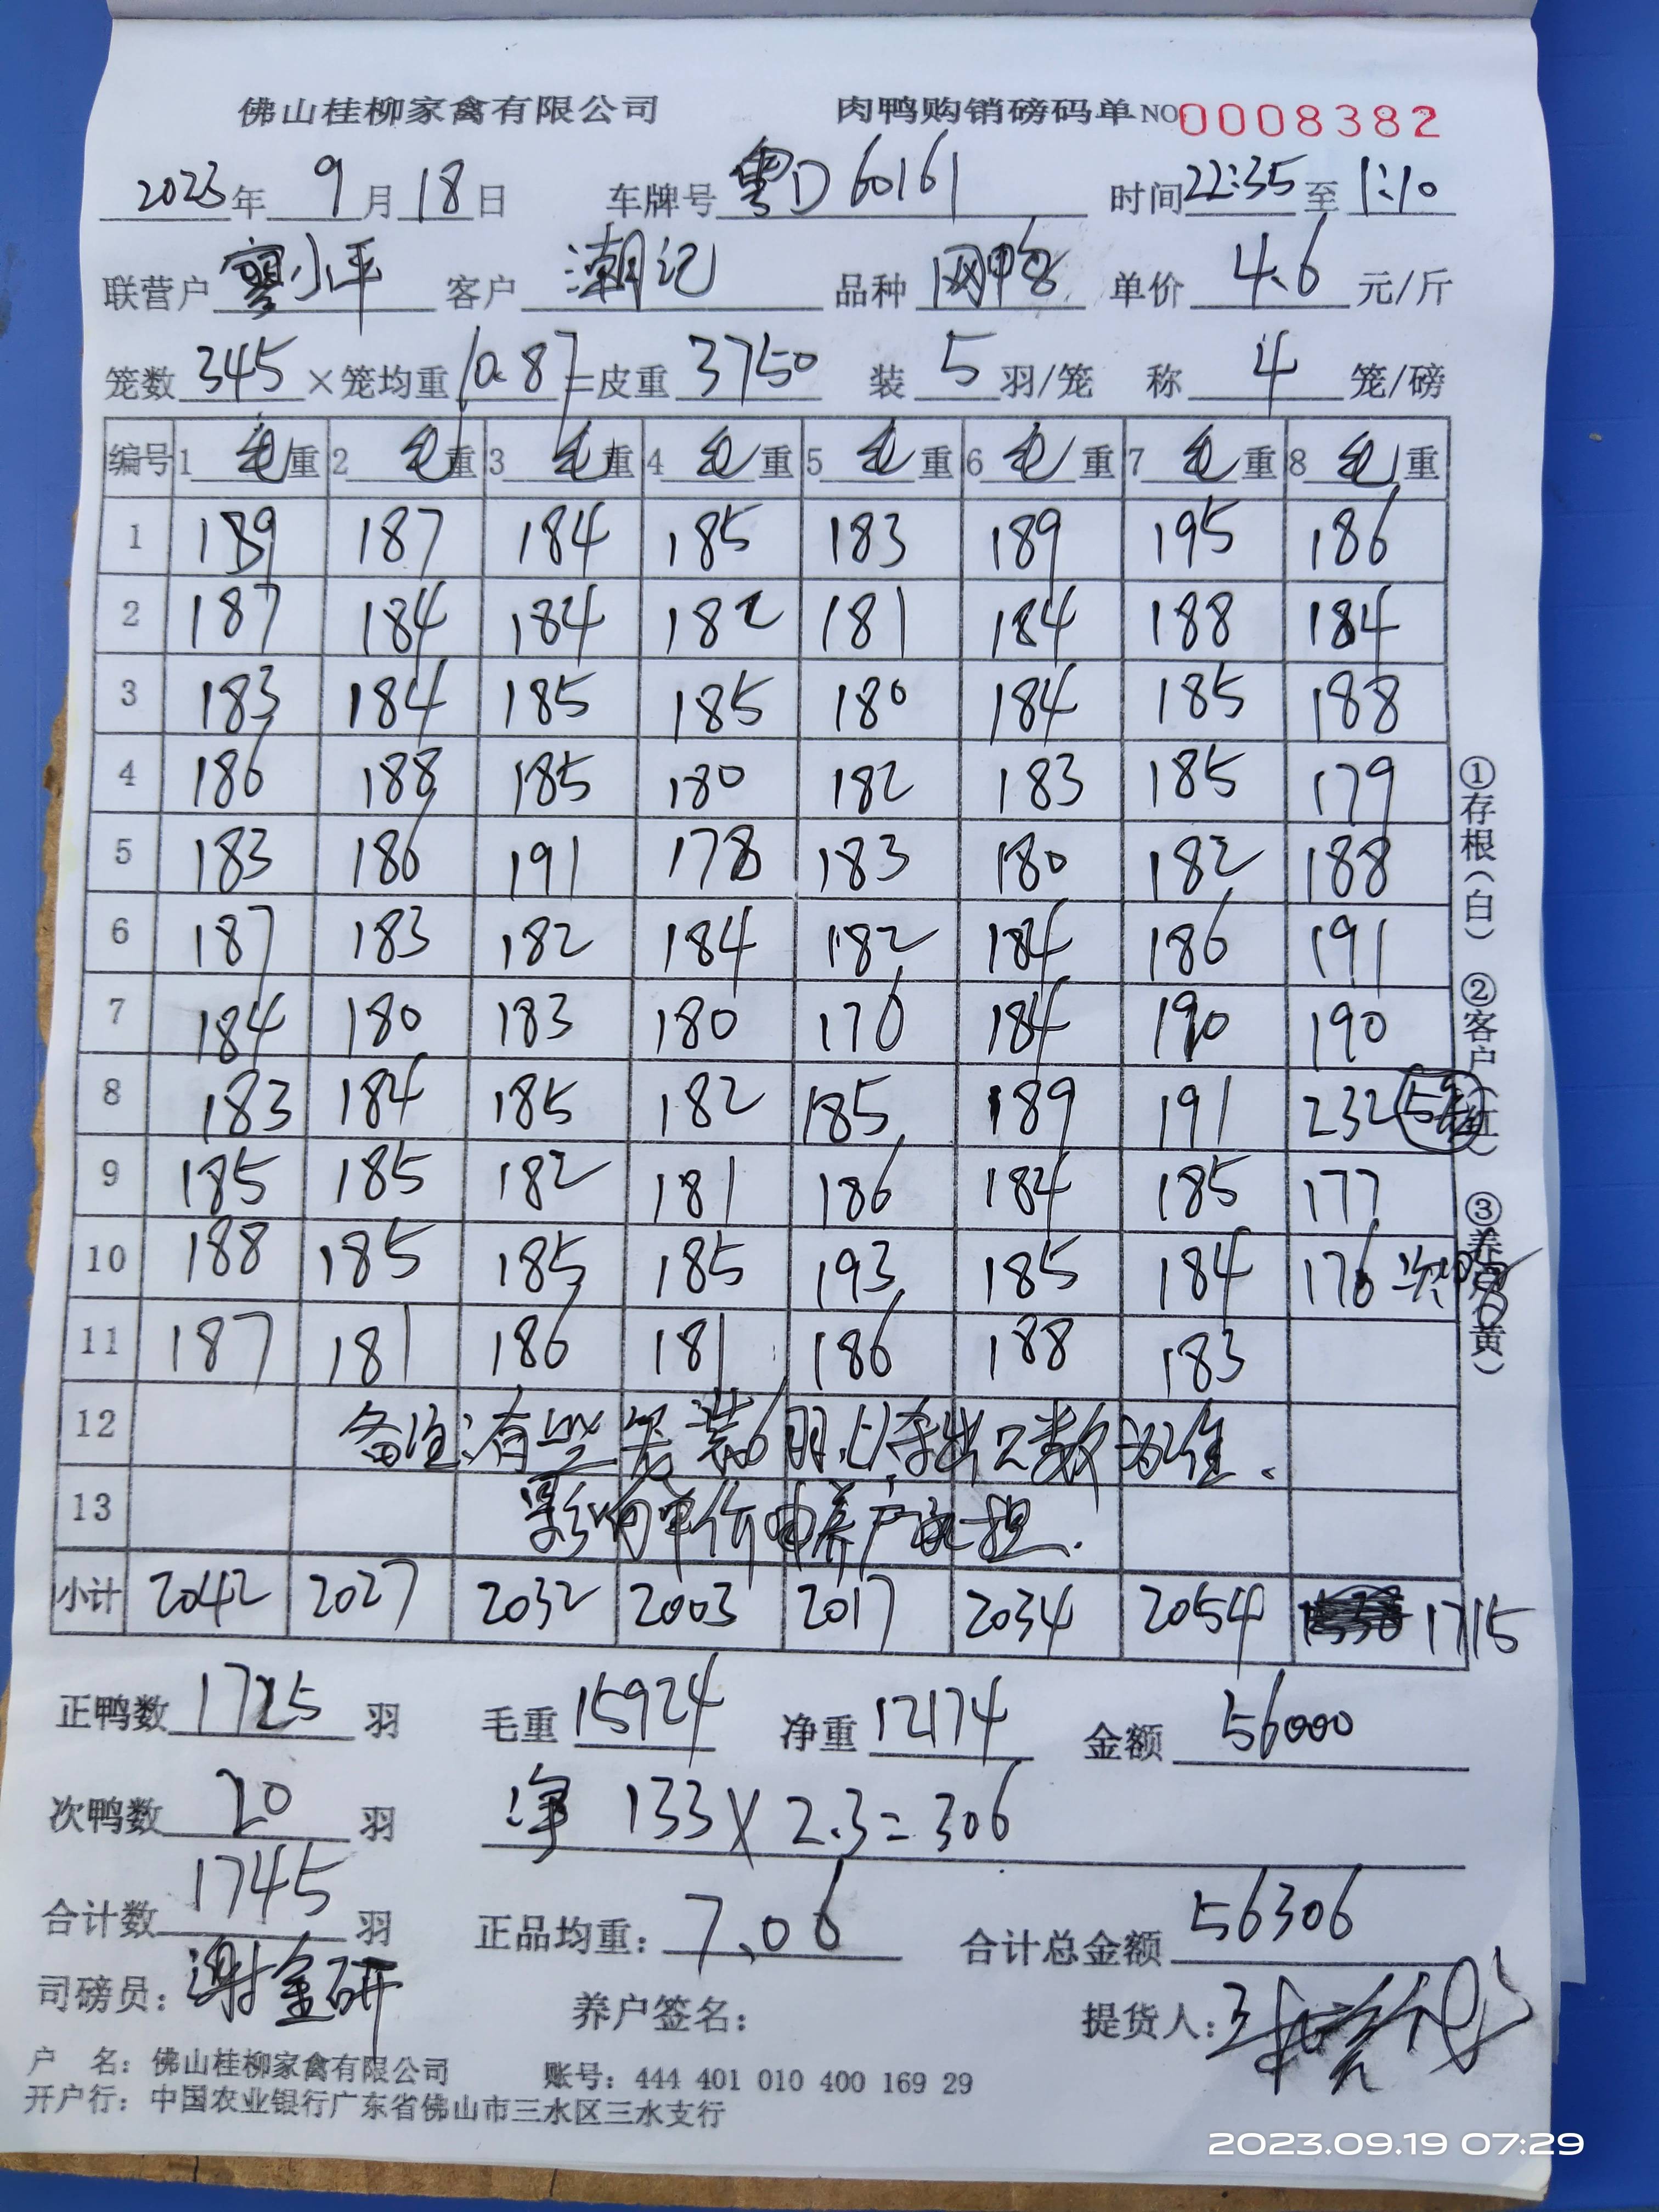 佛山桂柳家禽有限公司 肉鸭购销磅码单 NO 0008382
2023年 9月 18日 车牌号 粤D 60161 时间 22:35 至 1:10
联营户 廖小平 客户 潮记 品种 网鸭 单价 4.6 元/斤
笼数 345 ×笼均重 10.87 =皮重 3750 装 5 羽/笼 称 4 笼/磅
编号 1 毛重 2 毛重 3 毛重 4 毛重 5 毛重 6 毛重 7 毛重 8 毛重
1 189 187 184 185 183 189 195 186
2 187 184 184 182 181 184 188 184
3 183 184 185 185 180 184 185 188
4 186 188 185 180 182 183 185 179
5 183 186 191 178 183 180 182 188
6 187 183 182 184 182 184 186 191
7 184 180 183 180 176 184 190 190
8 183 184 185 182 185 189 191 232 5笼
9 185 185 182 181 186 184 185 177
10 188 185 185 185 193 185 184 176 次
11 187 181 186 181 186 188 183
12 备注:有些笼装6羽,以杀出只数为准.
13 影响单价由养户承担.
小计 2042 2027 2032 2003 2017 2034 2054 1715
正鸭数 1725 羽 毛重 15924 净重 12174 金额 56000
次鸭数 20 羽 净 133×2.3=306
合计数 1745 羽 正品均重: 7.06 合计总金额 56306
司磅员: 谢金研 养户签名: 提货人:
户 名: 佛山桂柳家禽有限公司 账号: 444 401 010 400 169 29
开户行: 中国农业银行广东省佛山市三水区三水支行
①存根(白) ②客户(红) ③养户(黄)
2023.09.19 07:29